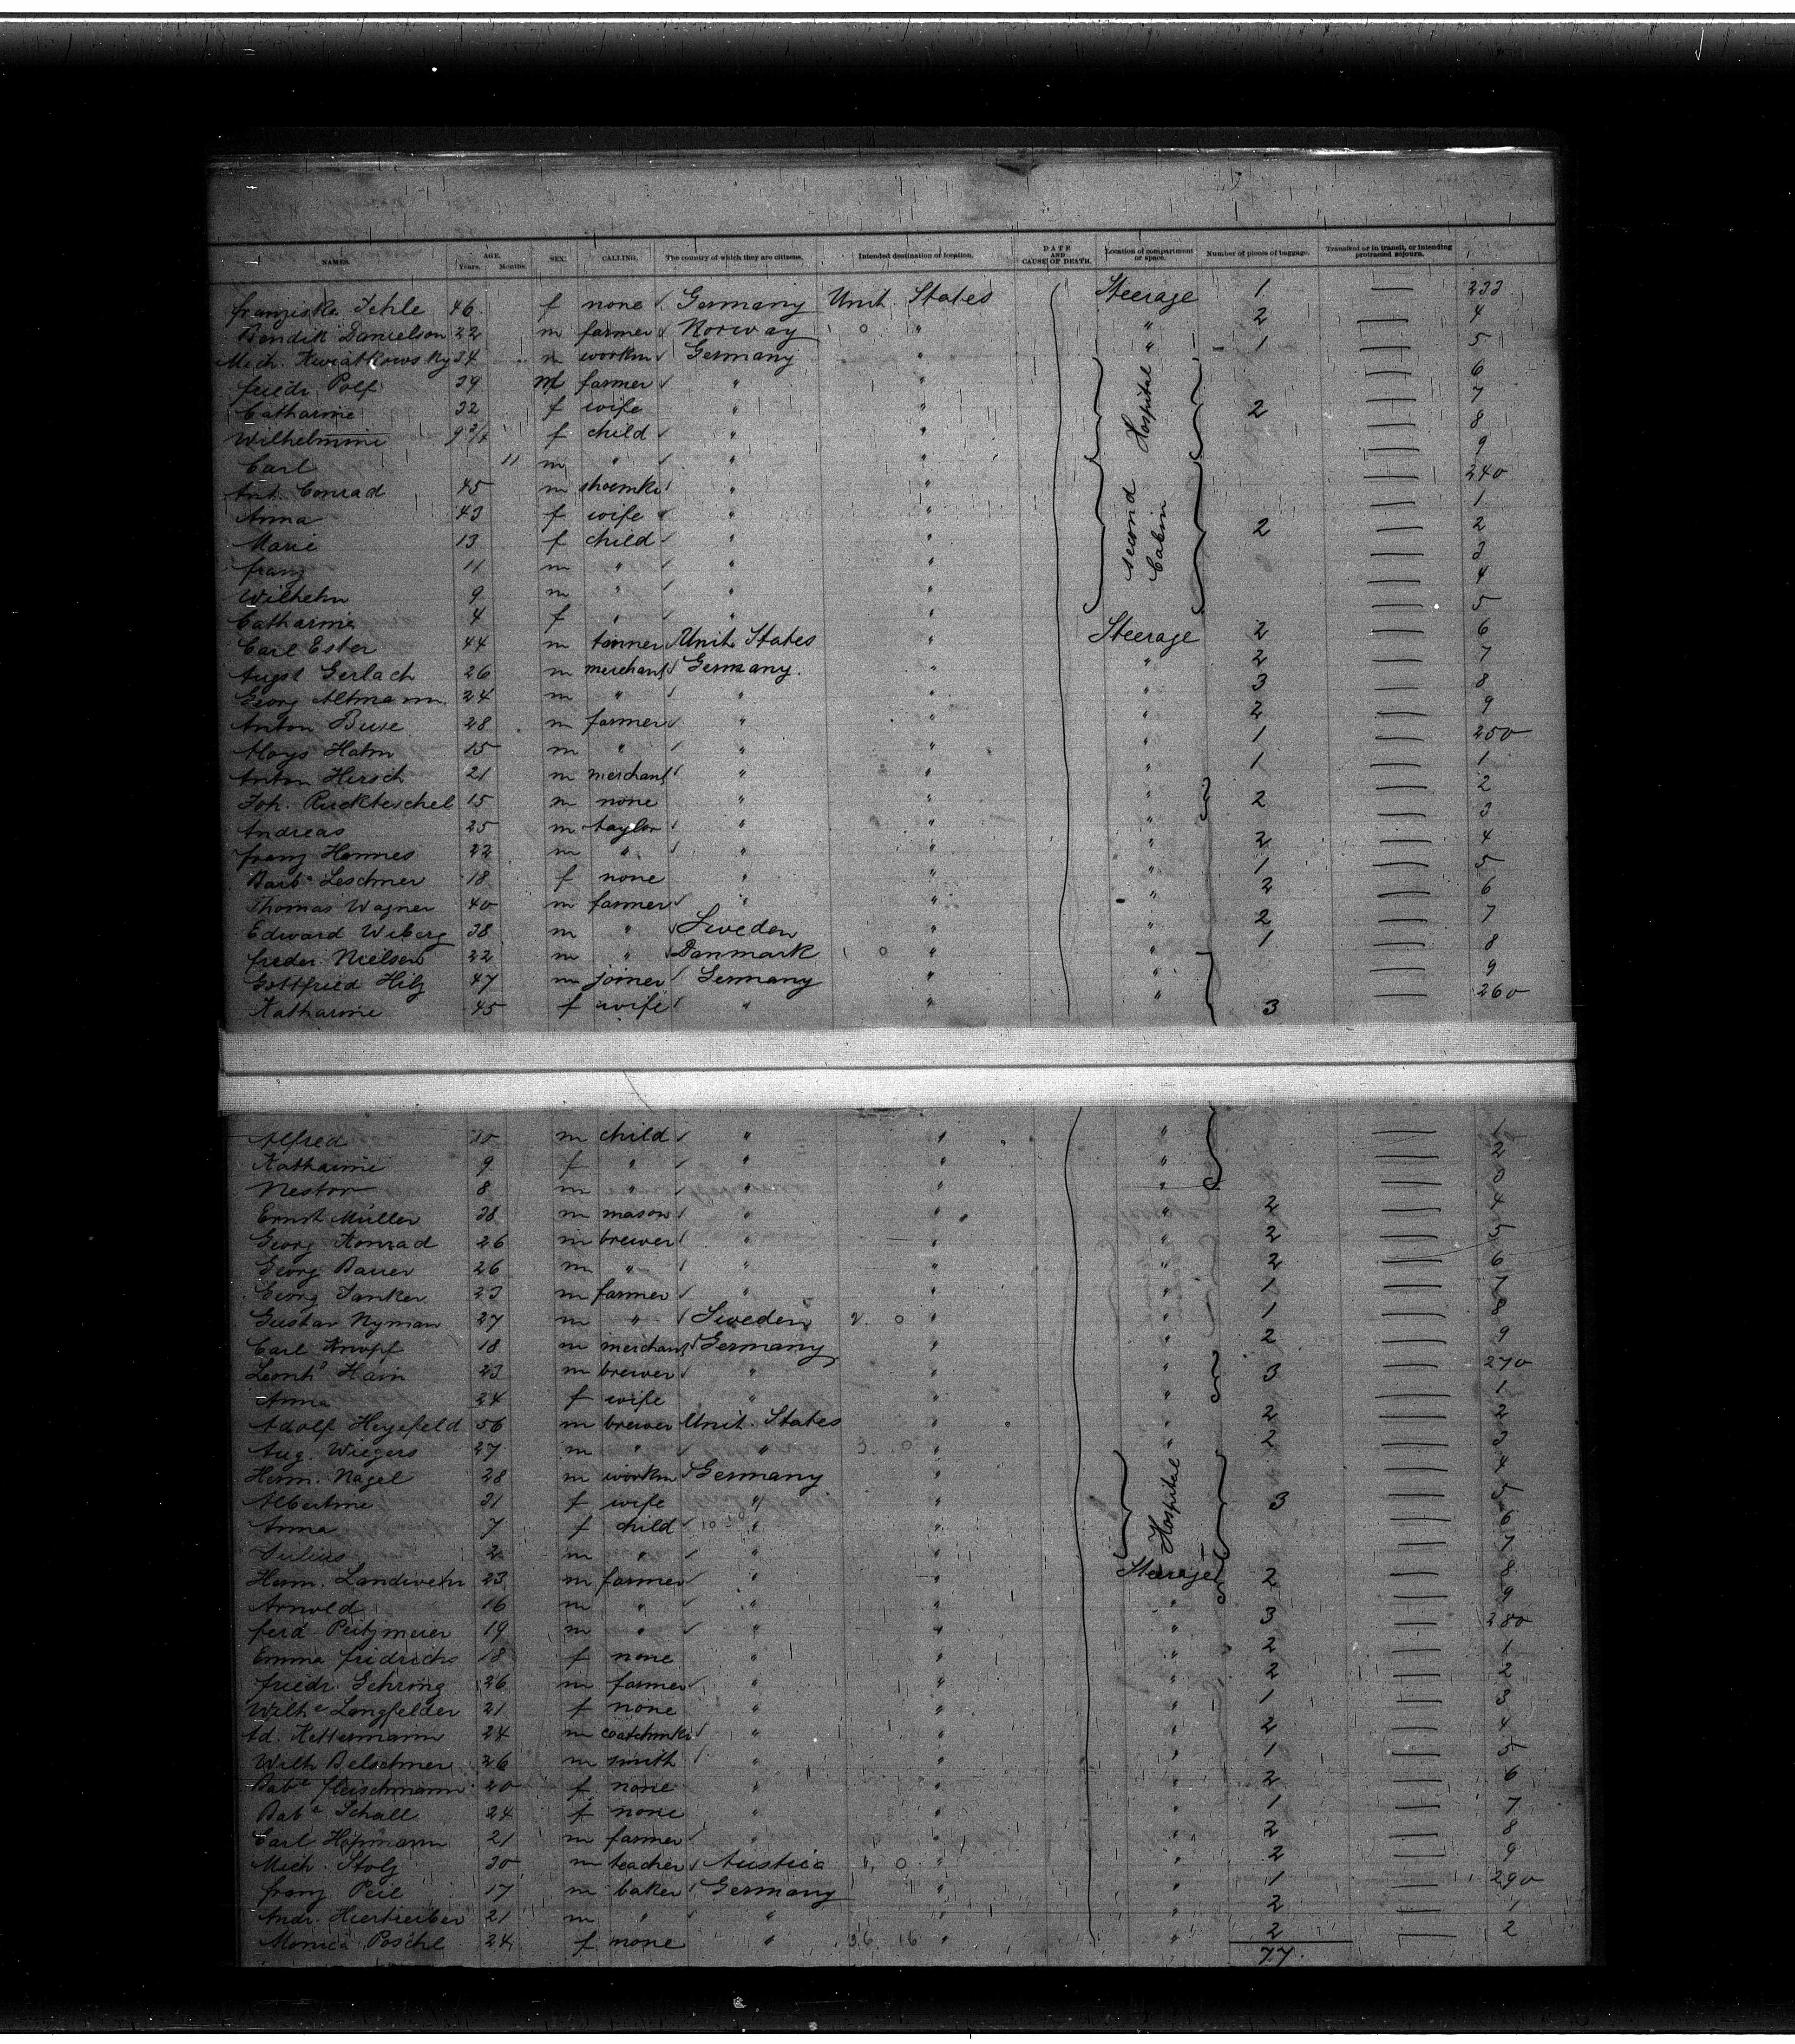 NAMES. AGE. Years. Months. SEX. CALLING. The country of which they are citizens. Intended destination or location. DATE AND CAUSE OF DEATH. Location of compartment or space. Number of pieces of baggage. Transient or in transit, or intending protracted sojourn.
Franziska 46 f none Germany Unit States Steerage 1 — 233
Bendik Danielson 22 m farmer Norway " " 2 — 4
Mich. Kwiatkowsky 34 m workm Germany " " 1 — 5
Friedr. 39 m farmer " " Hospital — 6
Catharine 32 f wife " " 2 — 7
Wilhelmine f child " " — 8
Carl 11 m " " " — 9
Ant. Conrad 45 m shoemkr " " second Cabin — 240
Anna 43 f wife " " — 1
Marie 13 f child " " 2 — 2
Franz 11 m " " " — 3
Wilhelm 9 m " " " — 4
Catharine 4 f " " " — 5
Carl Ester 44 m tanner Unit. States " Steerage 2 — 6
Augst Gerlach 26 m merchant Germany. " " 2 — 7
Georg Altmann 24 m " " " " 3 — 8
Anton 28 m farmer " " " 2 — 9
Aloys Hahn 15 m " " " " 1 — 250
Anton Hirsch 21 m merchant " " " 1 — 1
Joh. Ruckteschel 15 m none " " " 2 — 2
Andreas 25 m taylor " " " — 3
Franz Hannes 22 m " " " " 2 — 4
Barba Leschner 18 f none " " " 1 — 5
Thomas Wagner 40 m farmer " " " 2 — 6
Edward Wiberg 38 m " Sweden " " 2 — 7
Freder. Nielsen 22 m " Danmark " " 1 — 8
Gottfried Hilz 47 m joiner Germany " " — 9
Katharine 45 f wife " " " 3 — 260
Alfred 10 m child " " " — 1
Katharine 9 f " " " " — 2
Nestor 8 m " " " " — 3
Ernst Müller 38 m mason " " " 2 — 4
Georg Konrad 26 m brewer " " " 2 — 5
Georg Bauer 26 m " " " " 2 — 6
Georg Janker 23 m farmer " " " 1 — 7
Gustav Nyman 27 m " Sweden 2. 0 " " 1 — 8
Carl Knopf 18 m merchant Germany " " 2 — 9
Leonhd Hain 23 m brewer " " " 3 — 270
Anna 24 f wife " " " — 1
Adolf Heyefeld 56 m brewer Unit. States " " 2 — 2
Aug. Wiegers 27 m " " 3. 0 " " 2 — 3
Herm. Nagel 28 m workm Germany " Hospital — 4
Albertine 31 f wife " " 3 — 5
Anna 7 f child " " — 6
Julius 2 m " " " — 7
Herm. Landwehr 23 m farmer " " Steerage 2 — 8
Arnold 16 m " " " " — 9
Ferd. Peitzmeier 19 m " " " " 3 — 280
Emma Fridrichs 18 f none " " " 2 — 1
Friedr. Gehring 26 m farmer " " " 2 — 2
Wilhe Langfelder 21 f none " " " 1 — 3
Ad. Kettermann 24 m " " " 2 — 4
Wilh Belschner 26 m smith " " " 1 — 5
Baba Fleischmann 20 f none " " " 2 — 6
Baba Schall 24 f none " " " 1 — 7
Carl Hofmann 21 m farmer " " " 2 — 8
Mich. Stolz 30 m teacher Austria " 0 " " 2 — 9
Franz Peil 17 m baker Germany " " 1 — 290
Andr. 21 m " " " " 2 — 1
Monica Poschl 24 f none " 36 16 " " 2 — 2
77